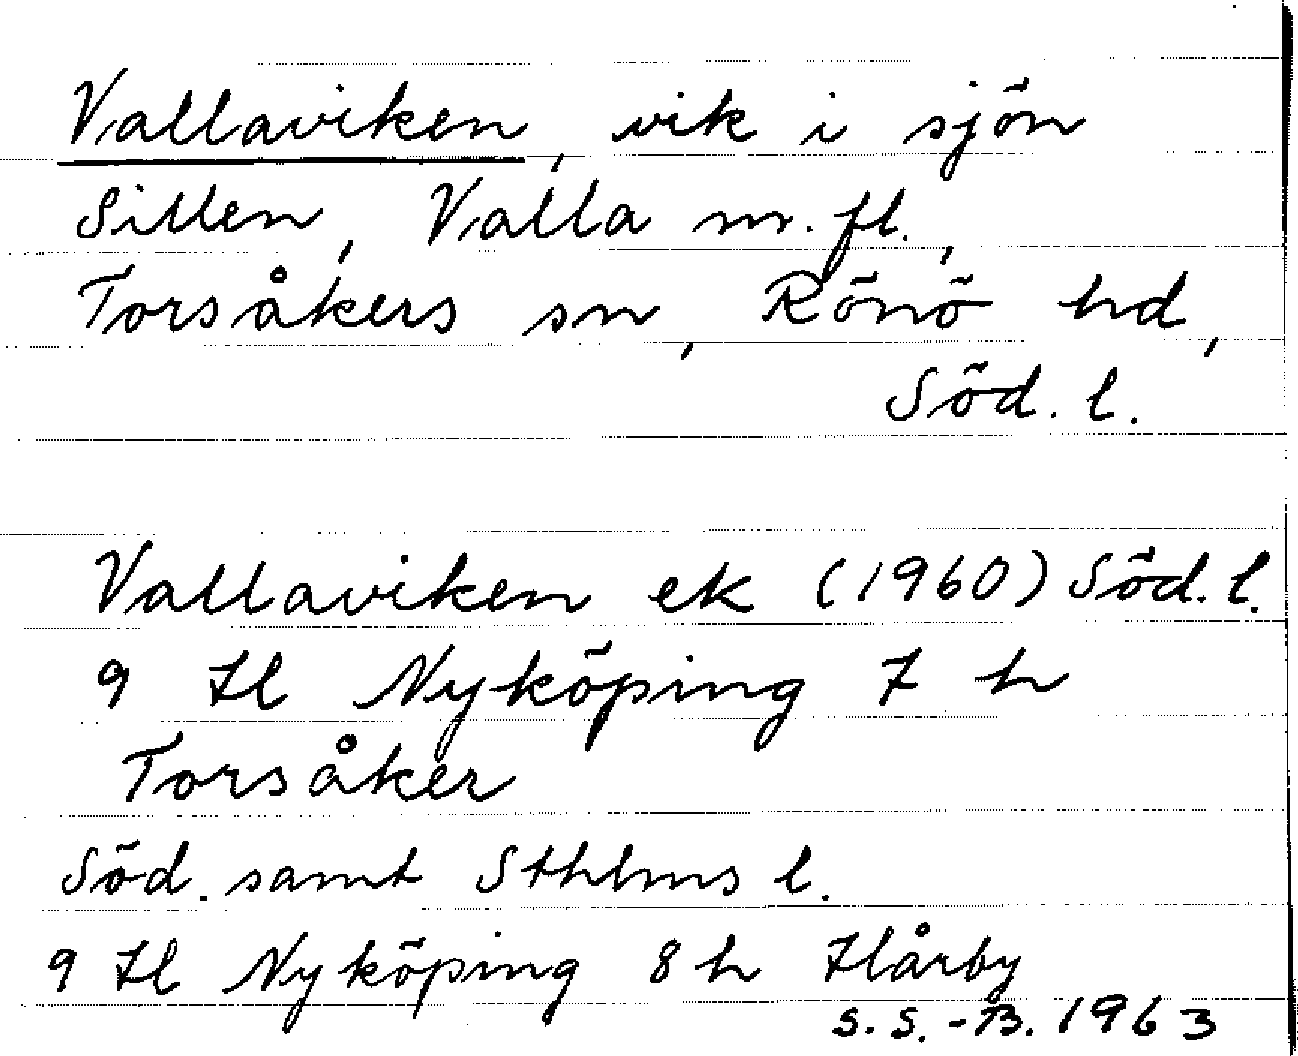 Vallaviken, vik i sjön
Sillen, Valla m.fl.,
Torsåkers sn, Rönö hd,
Söd. l.
Vallaviken ek (1960) Söd. l.
9 Nyköping 7 h
Torsåker
Söd. samt Sthlms l.
9 Nyköping 8 h
S.S.-B. 1963